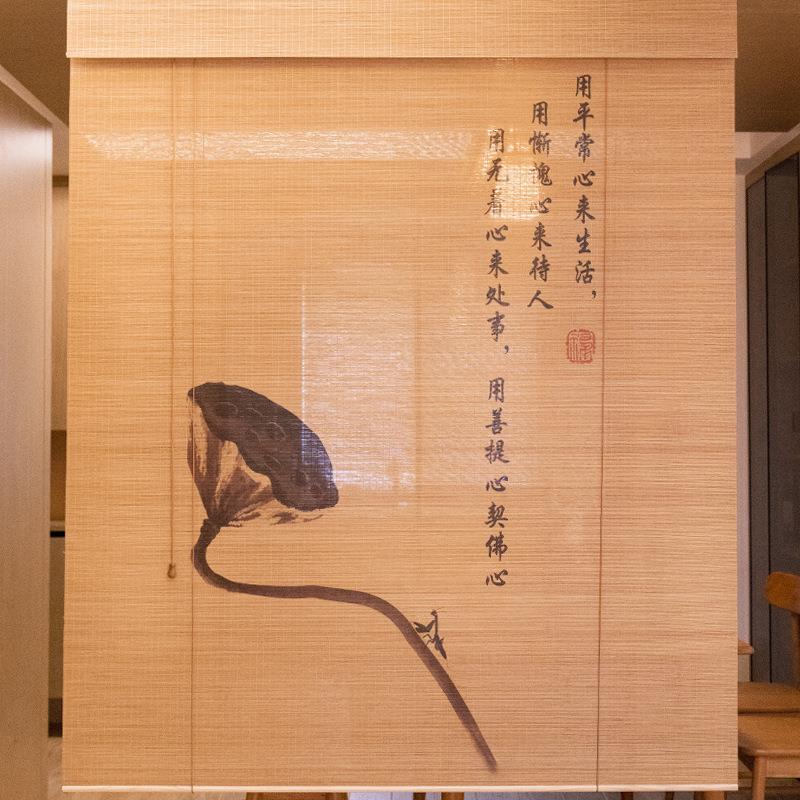 用平常心来生活，
用惭愧心来待人
用无着心来处事，用菩提心契佛心